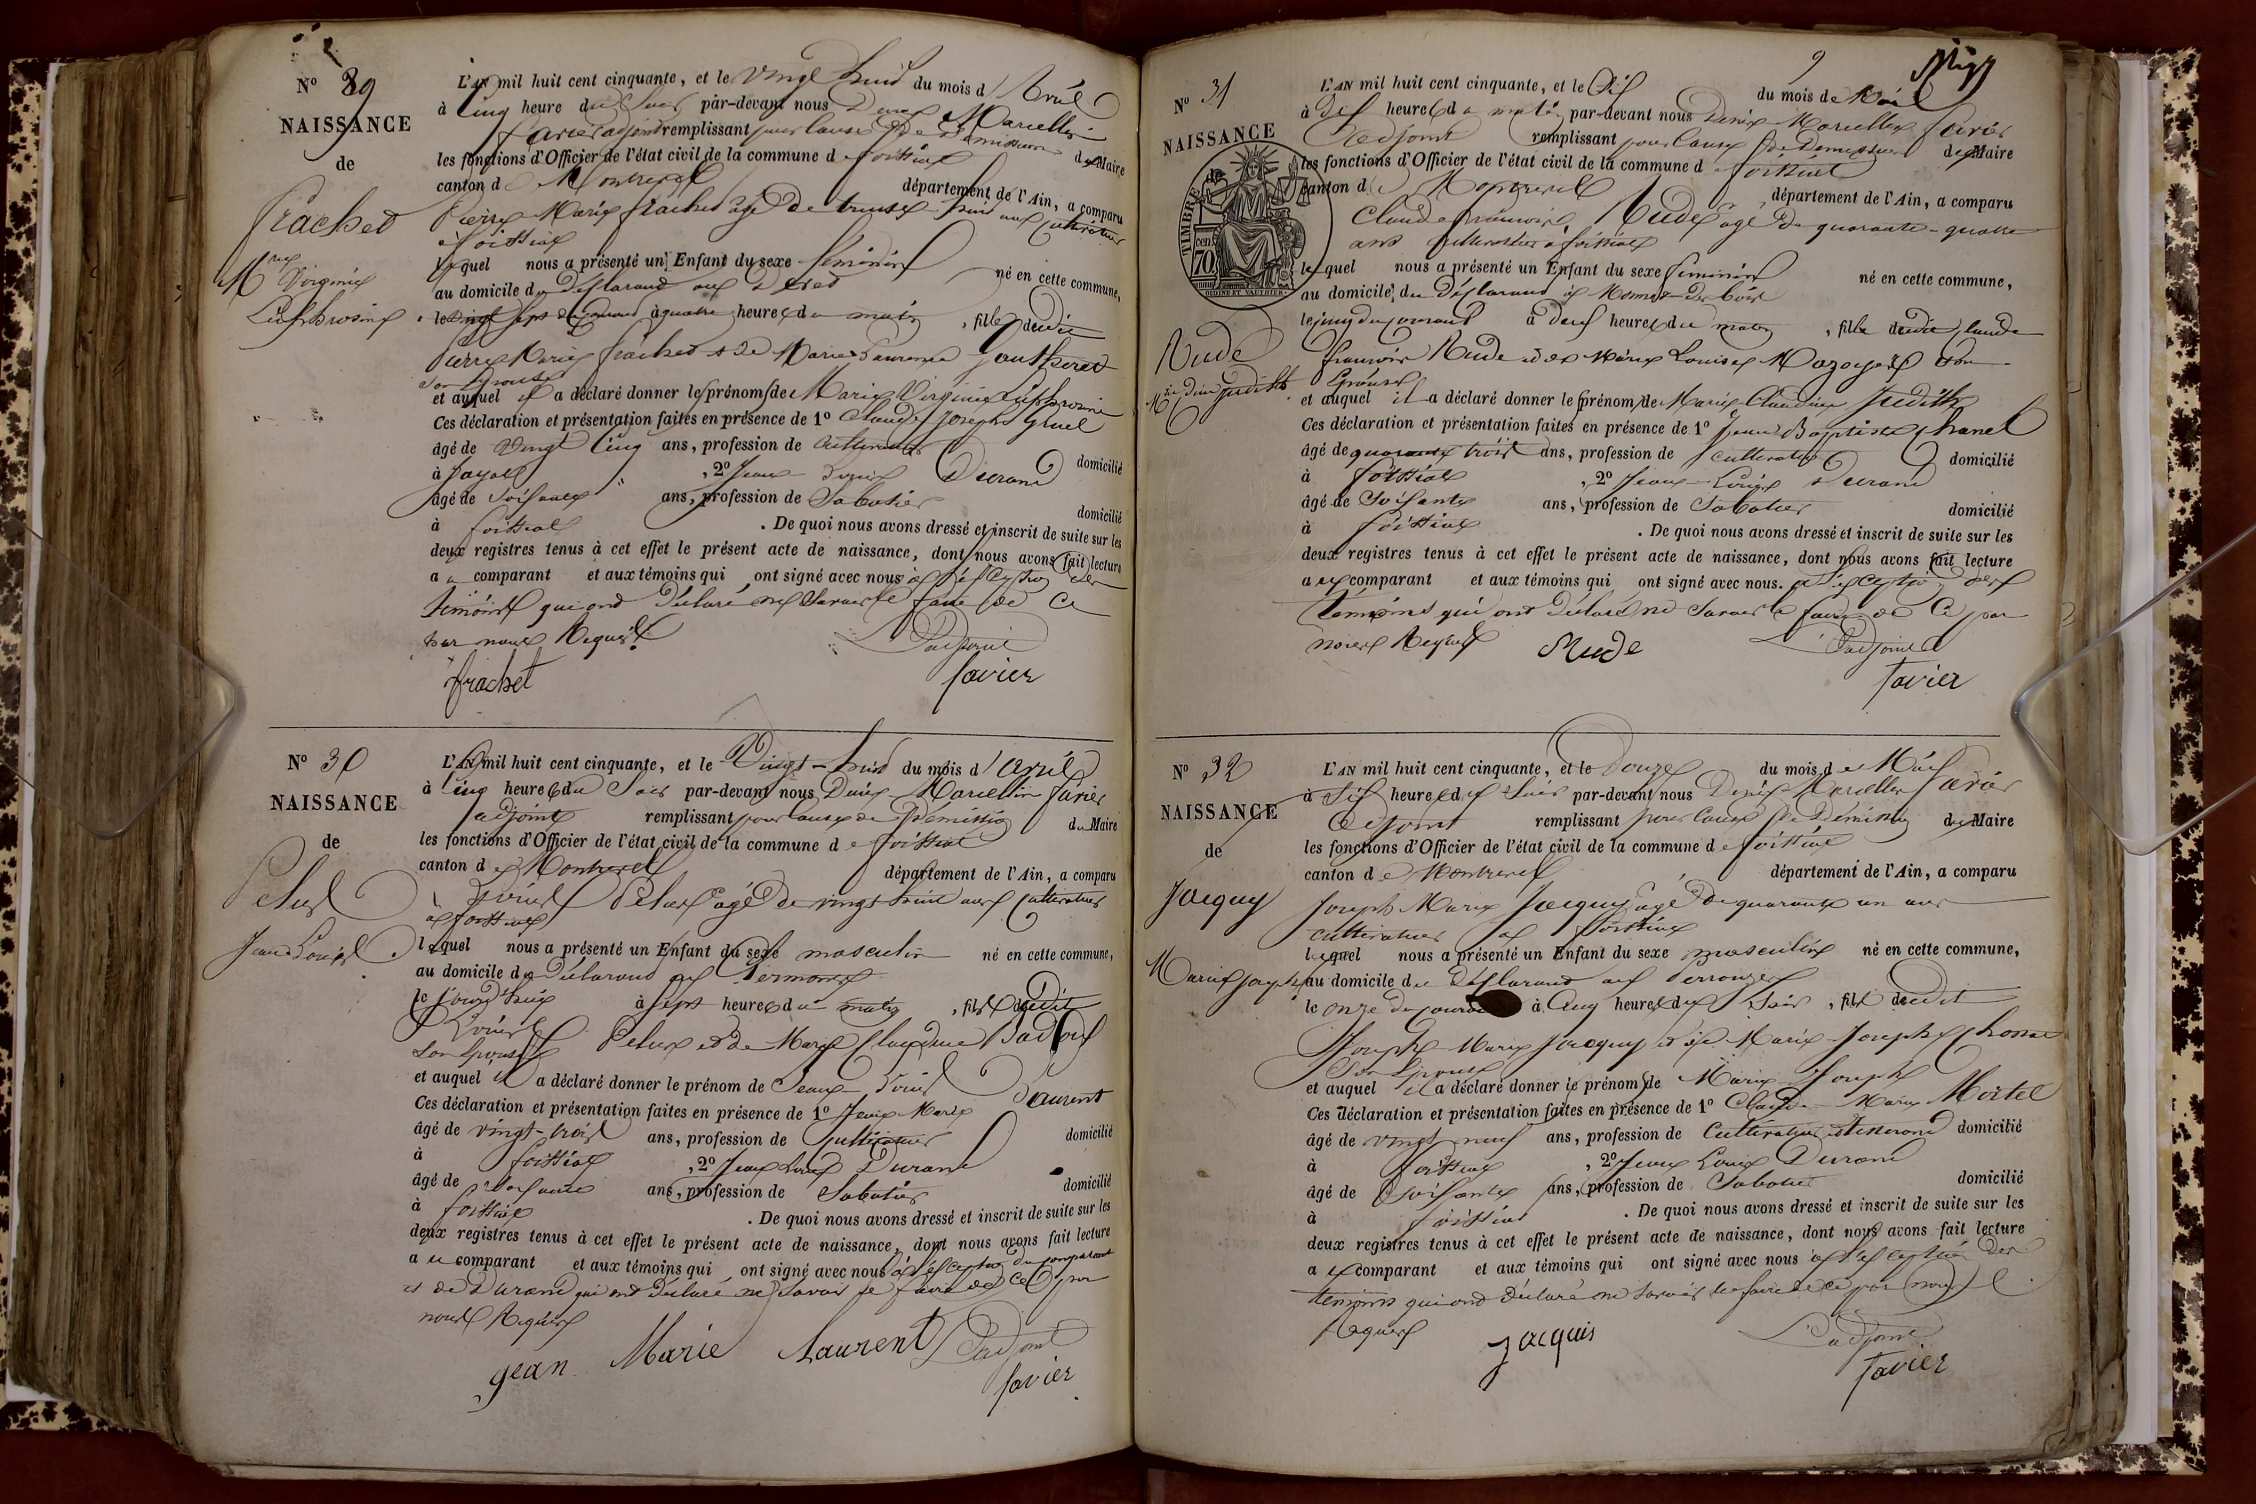 N° 29
NAISSANCE
de
frachet
Mie Virginie
Euphrosine
L'AN mil huit cent cinquante, et le vingt huit du mois d'Avril
à cinq heure du soir par-devant nous Denis Marcellin
favier adjoint remplissant pour cause de Démission du Maire
les fonctions d'Officier de l'état civil de la commune de foissiat
canton de Montrevel département de l'Ain, a comparu
Pierre Marie frachet agé de trente huit ans Cultivateur
à foissiat
lequel nous a présenté un Enfant du sexe féminin né en cette commune,
au domicile du Déclarant
le vingt sept du courant à quatre heures du matin, fille dudit
Pierre Marie frachet et de Marie Laurence
son Epouse
et auquel il a déclaré donner les prénoms de Marie Virginie Euphrosine
Ces déclaration et présentation faites en présence de 1° Claude Joseph Gruel
âgé de vingt cinq ans, profession de Cultivateur domicilié
à Jayat, 2° Jean Louis Durand
âgé de Soixante ans, profession de Sabotier domicilié
à foissiat. De quoi nous avons dressé et inscrit de suite sur les
deux registres tenus à cet effet le présent acte de naissance, dont nous avons fait lecture
au comparant et aux témoins qui ont signé avec nous à l'exception des
témoins qui ont déclaré ne savoir le faire de ce
par nous Requis.
L'adjoint
frachet favier
N° 30
NAISSANCE
de
Pelus
Jean Louis
L'AN mil huit cent cinquante, et le Vingt-huit du mois d'avril
à cinq heures du soir par-devant nous Denis Marcellin favier
adjoint remplissant pour cause de Démission du Maire
les fonctions d'Officier de l'état civil de la commune de foissiat
canton de Montrevel département de l'Ain, a comparu
Louis Pelus agé de vingt huit ans Cultivateur
à foissiat
lequel nous a présenté un Enfant du sexe masculin né en cette commune,
au domicile du Déclarant
le jourd'hui à sept heures du matin, fils dudit
Louis Pelus et de Marie Claudine
son Epouse
et auquel il a déclaré donner le prénom de Jean Louis
Ces déclaration et présentation faites en présence de 1° Jean Marie Laurent
âgé de vingt-trois ans, profession de Cultivateur domicilié
à foissiat, 2° Jean Louis Durand
âgé de Soixante ans, profession de Sabotier domicilié
à foissiat. De quoi nous avons dressé et inscrit de suite sur les
deux registres tenus à cet effet le présent acte de naissance, dont nous avons fait lecture
au comparant et aux témoins qui ont signé avec nous à l'exception du comparant
et de Durand qui ont déclaré ne savoir le faire de ce par
nous Requis
jean Marie Laurent L'adjoint
favier
9
N° 31
NAISSANCE
de
TIMBRE
cen. 70
Nude
Mie dine judith
L'AN mil huit cent cinquante, et le six du mois de Mai
à heures du matin par-devant nous Denis Marcellin favier
Adjoint remplissant pour cause de Démission du Maire
les fonctions d'Officier de l'état civil de la commune de foissiat
canton de Montrevel département de l'Ain, a comparu
Claude françois Nude agé de quarante-quatre
ans cultivateur à foissiat
lequel nous a présenté un Enfant du sexe féminin né en cette commune,
au domicile du déclarant
le cinq du courant à deux heures du matin, fille dudit Claude
françois Nude et de Marie Louise Mazoyer son
Epouse
et auquel il a déclaré donner les prénoms de Marie Claudine Judith
Ces déclaration et présentation faites en présence de 1° Jean Baptiste Chanel
âgé de quarante trois ans, profession de cultivateur domicilié
à foissiat, 2° Jean Louis Durand
âgé de Soixante ans, profession de Sabotier domicilié
à foissiat. De quoi nous avons dressé et inscrit de suite sur les
deux registres tenus à cet effet le présent acte de naissance, dont nous avons fait lecture
au comparant et aux témoins qui ont signé avec nous. à l'exception des
témoins qui ont déclaré ne savoir le faire de ce par
nous Requis Nude L'adjoint
favier
N° 32
NAISSANCE
de
Jacquy
Marie Joseph
L'AN mil huit cent cinquante, et le Douze du mois de Mai
à Six heures du soir par-devant nous Denis Marcellin favier
Adjoint remplissant pour cause de Démission du Maire
les fonctions d'Officier de l'état civil de la commune de foissiat
canton de Montrevel département de l'Ain, a comparu
Joseph Marie Jacquy agé de quarante un ans
cultivateur à foissiat
lequel nous a présenté un Enfant du sexe masculin né en cette commune,
au domicile du Déclarant
le onze du courant à cinq heures du soir, fils dudit
Joseph Marie Jacquy et de Marie Josephe
Son Epouse
et auquel il a déclaré donner les prénoms de Marie Joseph
Ces déclaration et présentation faites en présence de 1° Claude Marie Mortel
âgé de vingt neuf ans, profession de Cultivateur domicilié
à foissiat, 2° Jean Louis Durand
âgé de Soixante ans, profession de Sabotier domicilié
à foissiat. De quoi nous avons dressé et inscrit de suite sur les
deux registres tenus à cet effet le présent acte de naissance, dont nous avons fait lecture
au comparant et aux témoins qui ont signé avec nous à l'exception des
témoins qui ont déclaré ne savoir le faire de ce par nous
Requis jacquis L'adjoint
favier